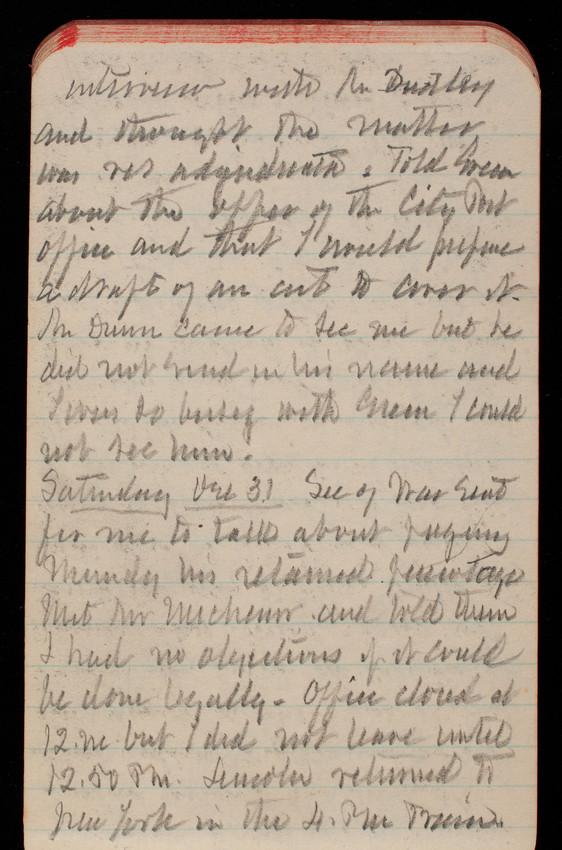 interview with Mr Dudley
and thought the matter
was res adjudicata. Told Green
about the offer of the City Post
office and that I would prepare
a draft of an act to cover it.
Mr Dunn came to see me but he
did not send in his name and
I was so busy with Green I could
not see him.
Saturday Dec 31 Sec of War sent
for me to talk about paying
Mundy his retained percentage
Met Mr Michener and told them
I had no objections if it could
be done legally. Office closed at
12.m but I did not leave until
12.50 P.m. Lincoln returned to
New York in the 4. Pm Train.